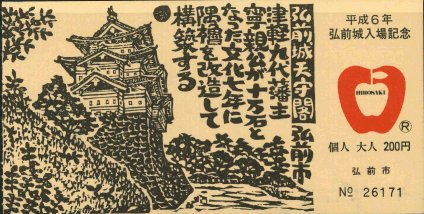 弘前城天守閣 弘前市
津軽九代藩主
寧親公が十万石と
なった文化七年に
隅櫓を改造して
構築する
平成6年
弘前城入場記念
HIROSAKI
®
個人 大人 200円
弘前市
№ 26171